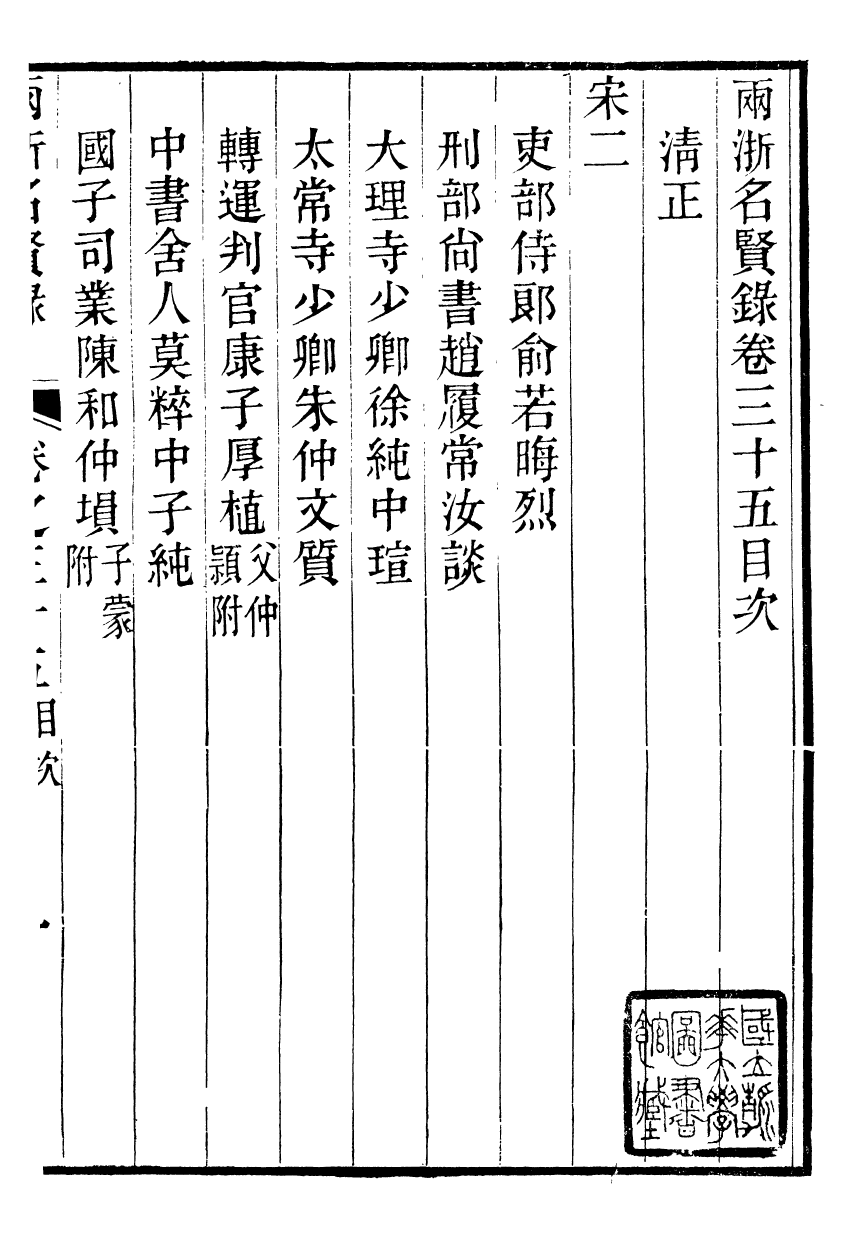 兩浙名賢錄卷三十五目次
清正
宋二
吏部侍郎俞若晦烈
刑部尚書趙履常汝談
大理寺少卿徐純中瑄
太常寺少卿朱仲文質
轉運判官康子厚植父仲頴附
中書舍人莫粹中子純
國子司業陳和仲塤子蒙附
兩浙名賢錄
卷之三十五目次
國立清華大學圖書館藏